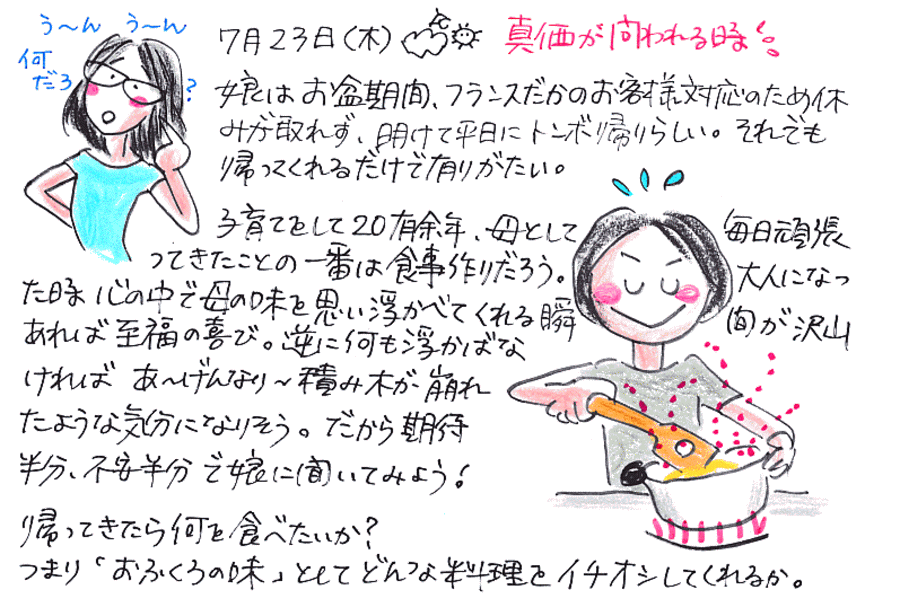 う〜ん う〜ん
何だろ?
7月23日(木)
真価が問われる時
娘はお盆期間、フランスだかのお客様対応のため休
みが取れず、明けて平日にトンボ帰りらしい。それでも
帰ってくれるだけで有りがたい。
子育てをして20有余年、母として毎日頑張
ってきたことの一番は食事作りだろう。大人になっ
た時心の中で母の味を思い浮かべてくれる瞬間が沢山
あれば至福の喜び。逆に何も浮かばな
ければ あ〜げんなり〜積み木が崩れ
たような気分になりそう。だから期待
半分、不安半分で娘に聞いてみよう!
帰ってきたら何を食べたいか?
つまり「おふくろの味」としてどんな料理をイチオシしてくれるか。